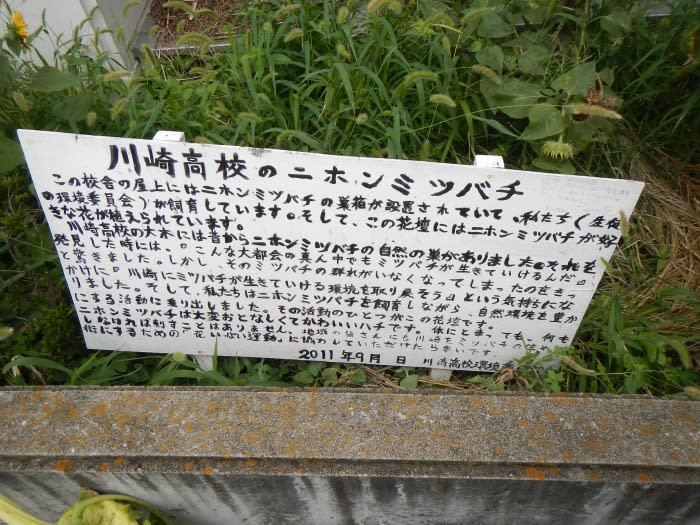 川崎高校のニホンミツバチ
この校舎の屋上にはニホンミツバチの巣箱が設置されていて、私たち(生徒
の環境委員会)が飼育しています。そして、この花壇にはニホンミツバチが好
きな花が植えられています。
川崎高校の大木には昔からニホンミツバチの自然の巣がありました。それを
発見した時には。こんな大都会の真ん中でもミツバチが生きていけるんだ。
と驚きました。しかし、そのミツバチの群れがいなくなってしまったのをき
かけに『川崎にミツバチが生きていける環境を取り戻そう』という気持ちにな
りました。そして、私たちはニホンミツバチを飼育しながら 自然環境を豊か
にする活動に乗り出しました。その活動のひとつがこの花壇です。
ミツバチは大変おとなしくてかわいいハチです。体にとまっても、何も
しなければ刺すことはありません。地域の皆さんにも川崎をミツバチの
街にするための 花いっぱい運動に協力していただけたら幸いです。
2011年9月 日 川崎高校環境